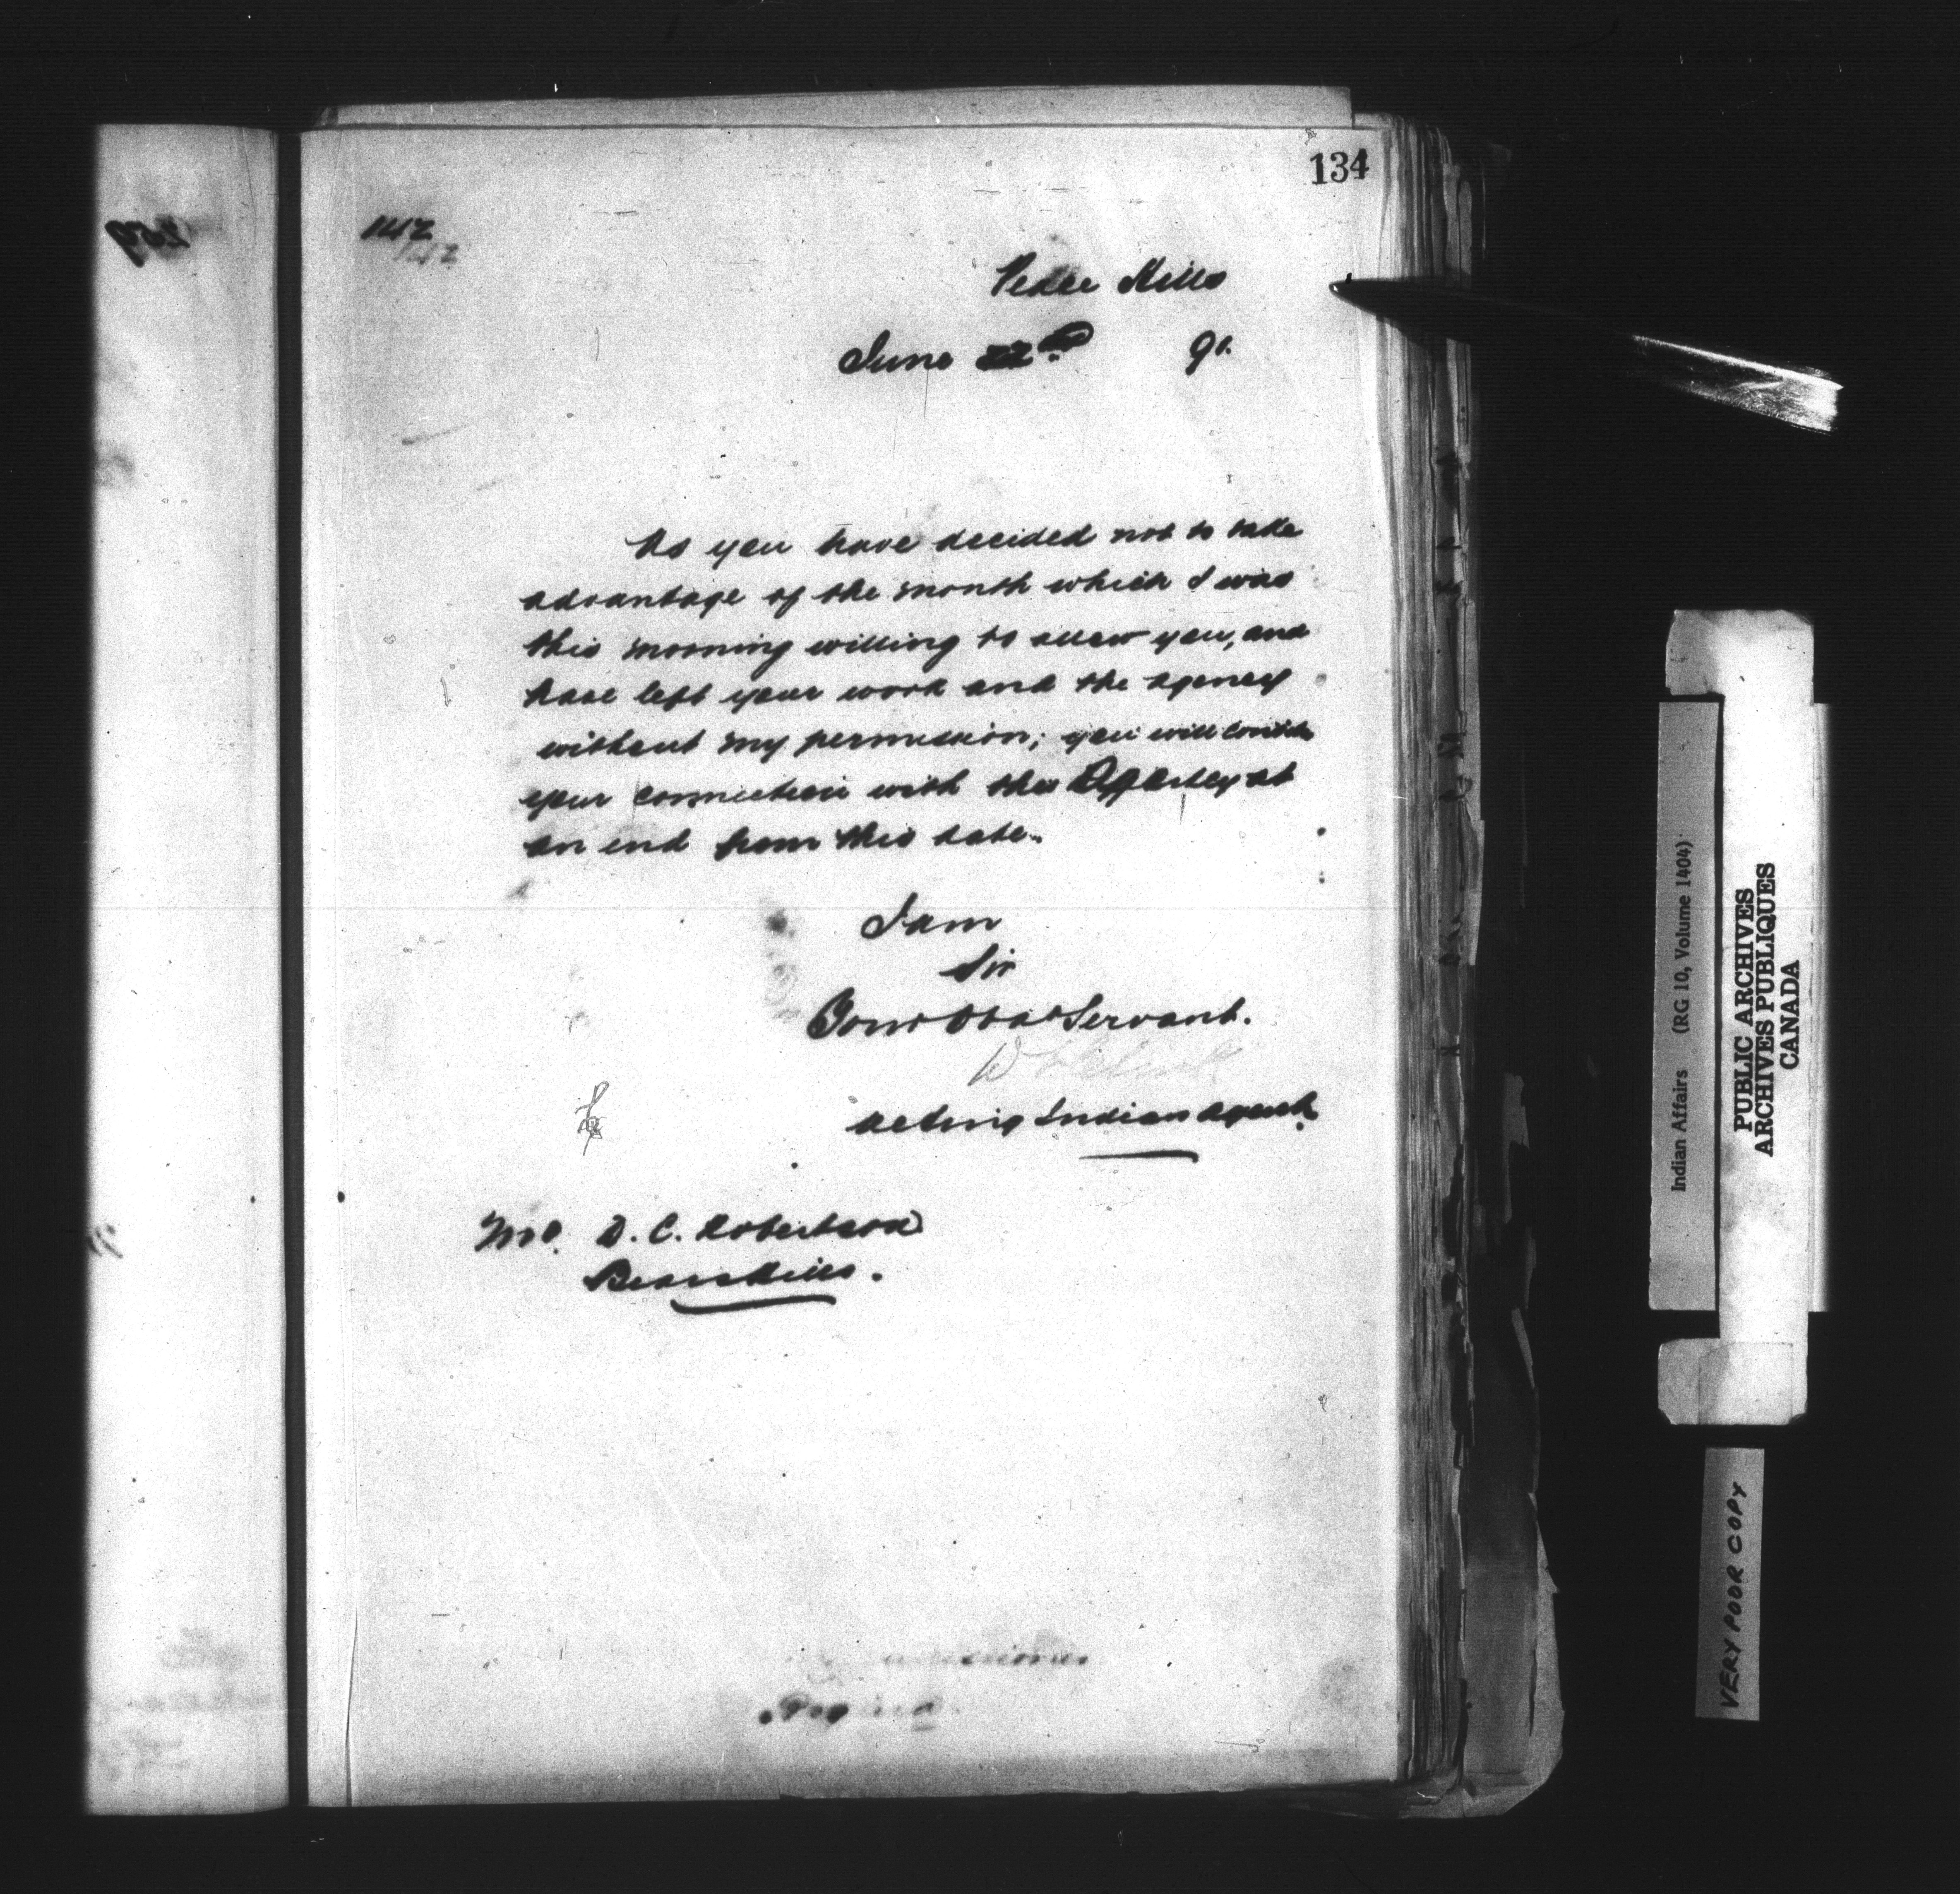 134
1412
1412
Peace Hills
June 22nd 91.
As you have decided not to take
advantage of the month which I was
this morning willing to allow you, and
have left your work and the agency
without my permission; you will consider
your connection with this Agency at
an end from this date.
I am
Sir
Your Obdt Servant.
Acting Indian Agent.
Mr. D. C. Robertson
Bears Hills.
Regina
Indian Affairs (RG 10, Volume 1404)
PUBLIC ARCHIVES
ARCHIVES PUBLIQUES
CANADA
VERY POOR COPY